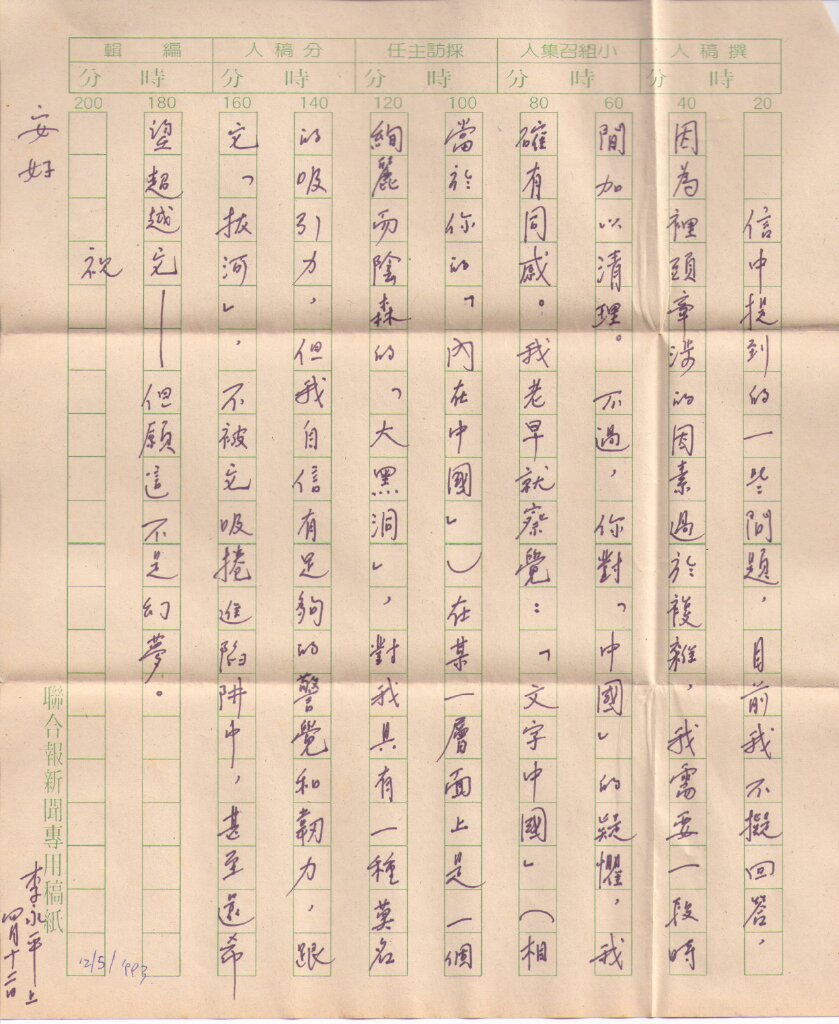 撰稿人 小組召集人 採訪主任 分稿人 編輯
時 分 時 分 時 分 時 分
20 40 60 80 100 120 140 160 180 200
信中提到的一些問題，目前我不擬回答，
因為裡頭牽涉的因素過於複雜，我需要一段時
間加以清理。不過，你對「中國」的疑懼，我
確有同感。我老早就察覺：「文字中國」（相
當於你的「內在中國」）在某一層面上是一個
絢麗而陰森的「大黑洞」，對我具有一種莫名
的吸引力，但我自信有足夠的警覺和韌力，跟
它「拔河」，不被它吸捲進陷阱中，甚至還希
望超越它——但願這不是幻夢。
祝
安好
李永平上
四月十二日
聯合報新聞專用稿紙
12/5/1993